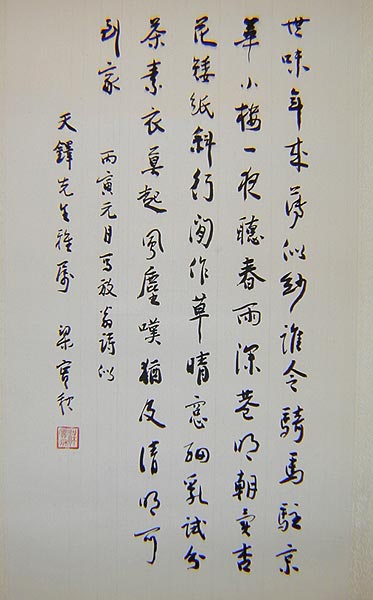 世味年來薄似紗誰令騎馬駐京
華小樓一夜聽春雨深巷明朝賣杏
花矮紙斜行閒作草晴窗細乳試分
茶素衣莫起風塵嘆猶及清明可
到家
丙寅元日寫放翁詩似
天鐸先生雅屬 梁實秋